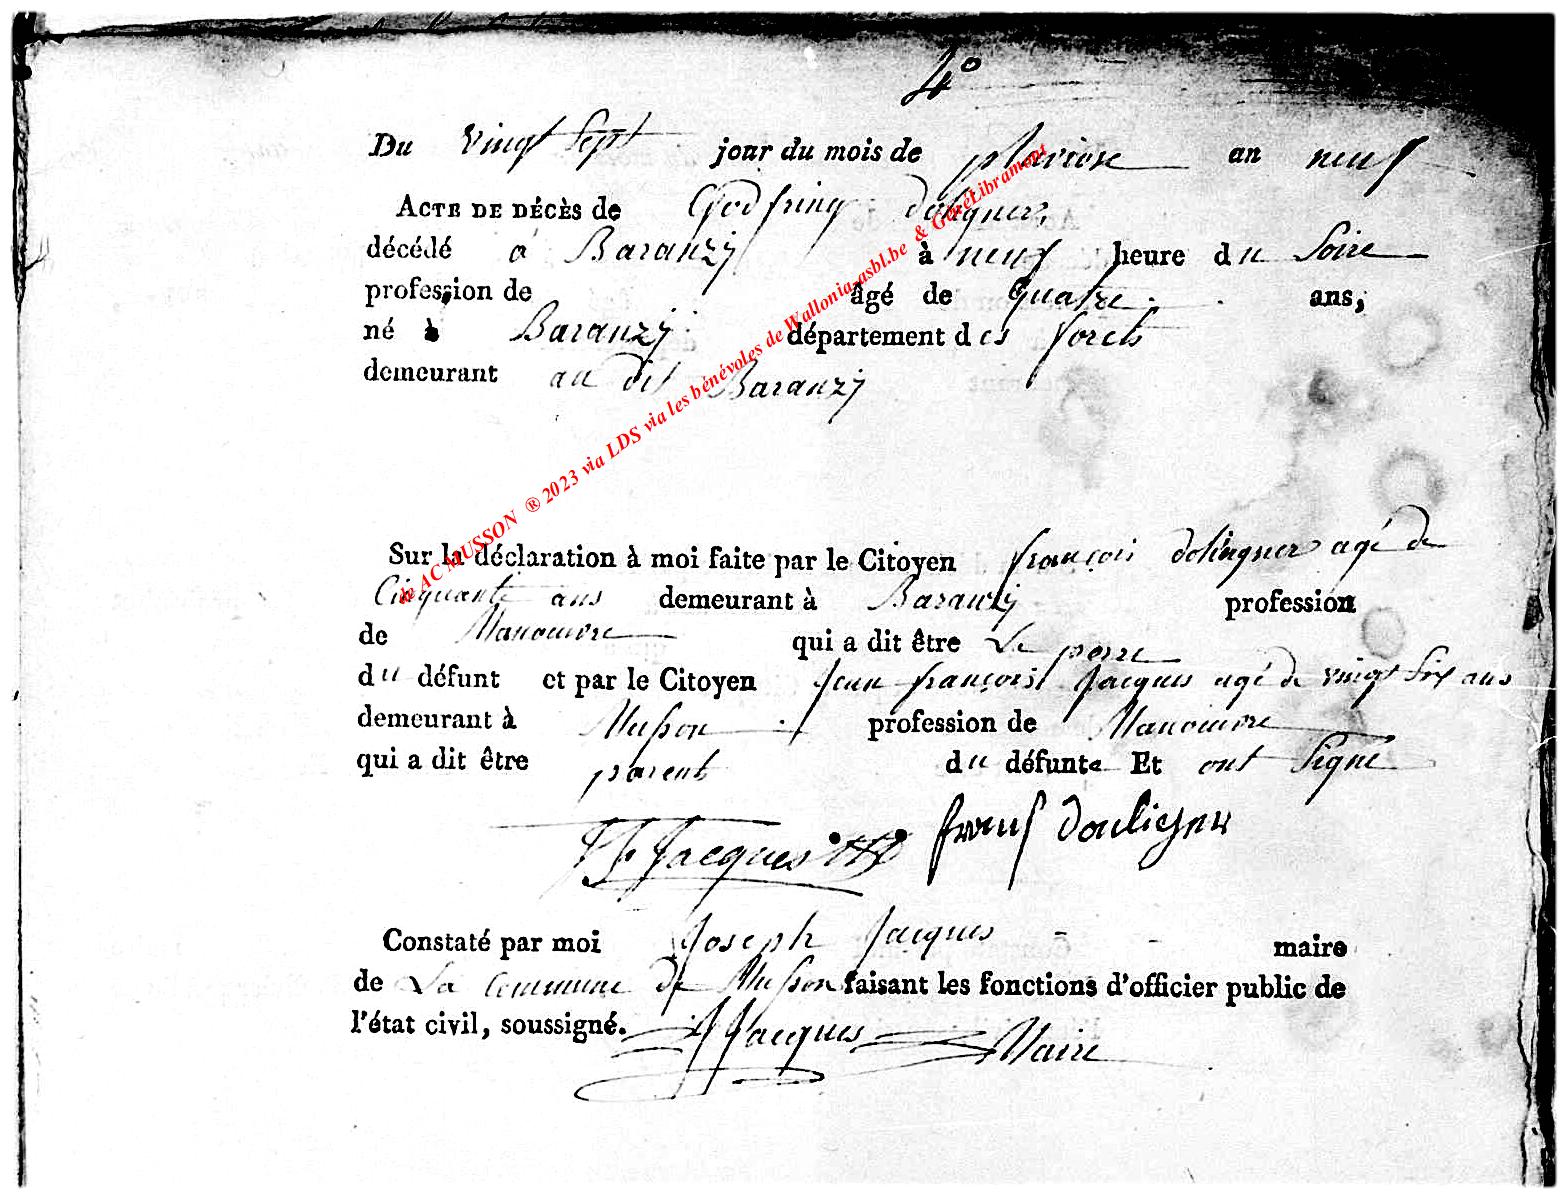 4°
Du vingt Sept jour du mois de pluviose an neuf
ACTE DE DÉCÈS de Godfring doligner,
décédé a Baranzÿ à neuf heure du Soire
profession de âgé de quatre ans,
né à Baranzÿ département des forets
demeurant au dit Baranzÿ
Sur la déclaration à moi faite par le Citoyen françois dolingner agé de
Cinquante ans demeurant à Baranzÿ profession
de Manouvre qui a dit être Le perre
du défunt et par le Citoyen Jean françois Jacques agé de vingt Six ans
demeurant à Musson profession de Manouvre
qui a dit être parent du défunte Et ont Signé
JF Jacques franÇ douliger
Constaté par moi Joseph Jacques maire
de La Commune de Musson faisant les fonctions d'officier public de
l'état civil, soussigné. J Jacques Maire
© AC MUSSON ® 2023 via LDS via les bénévoles de Wallonia-asbl.be & GareLibramont